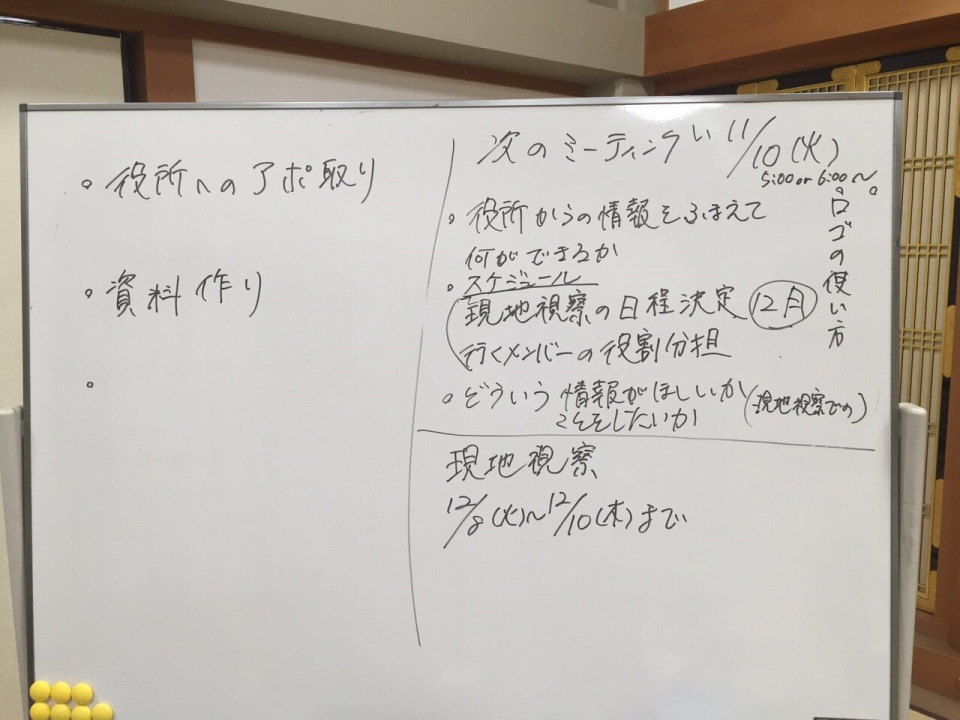 。役所へのアポ取り
。資料作り
。
次のミーティング 11/10(火)
5:00 or 6:00~
。役所からの情報をふまえて
何ができるか
。スケジュール
現地視察の日程決定 12月
行くメンバーの役割分担
。どういう情報がほしいか
したいか
(現地視察での)
。ロゴの使い方
現地視察
12/8(火)~12/10(木)まで